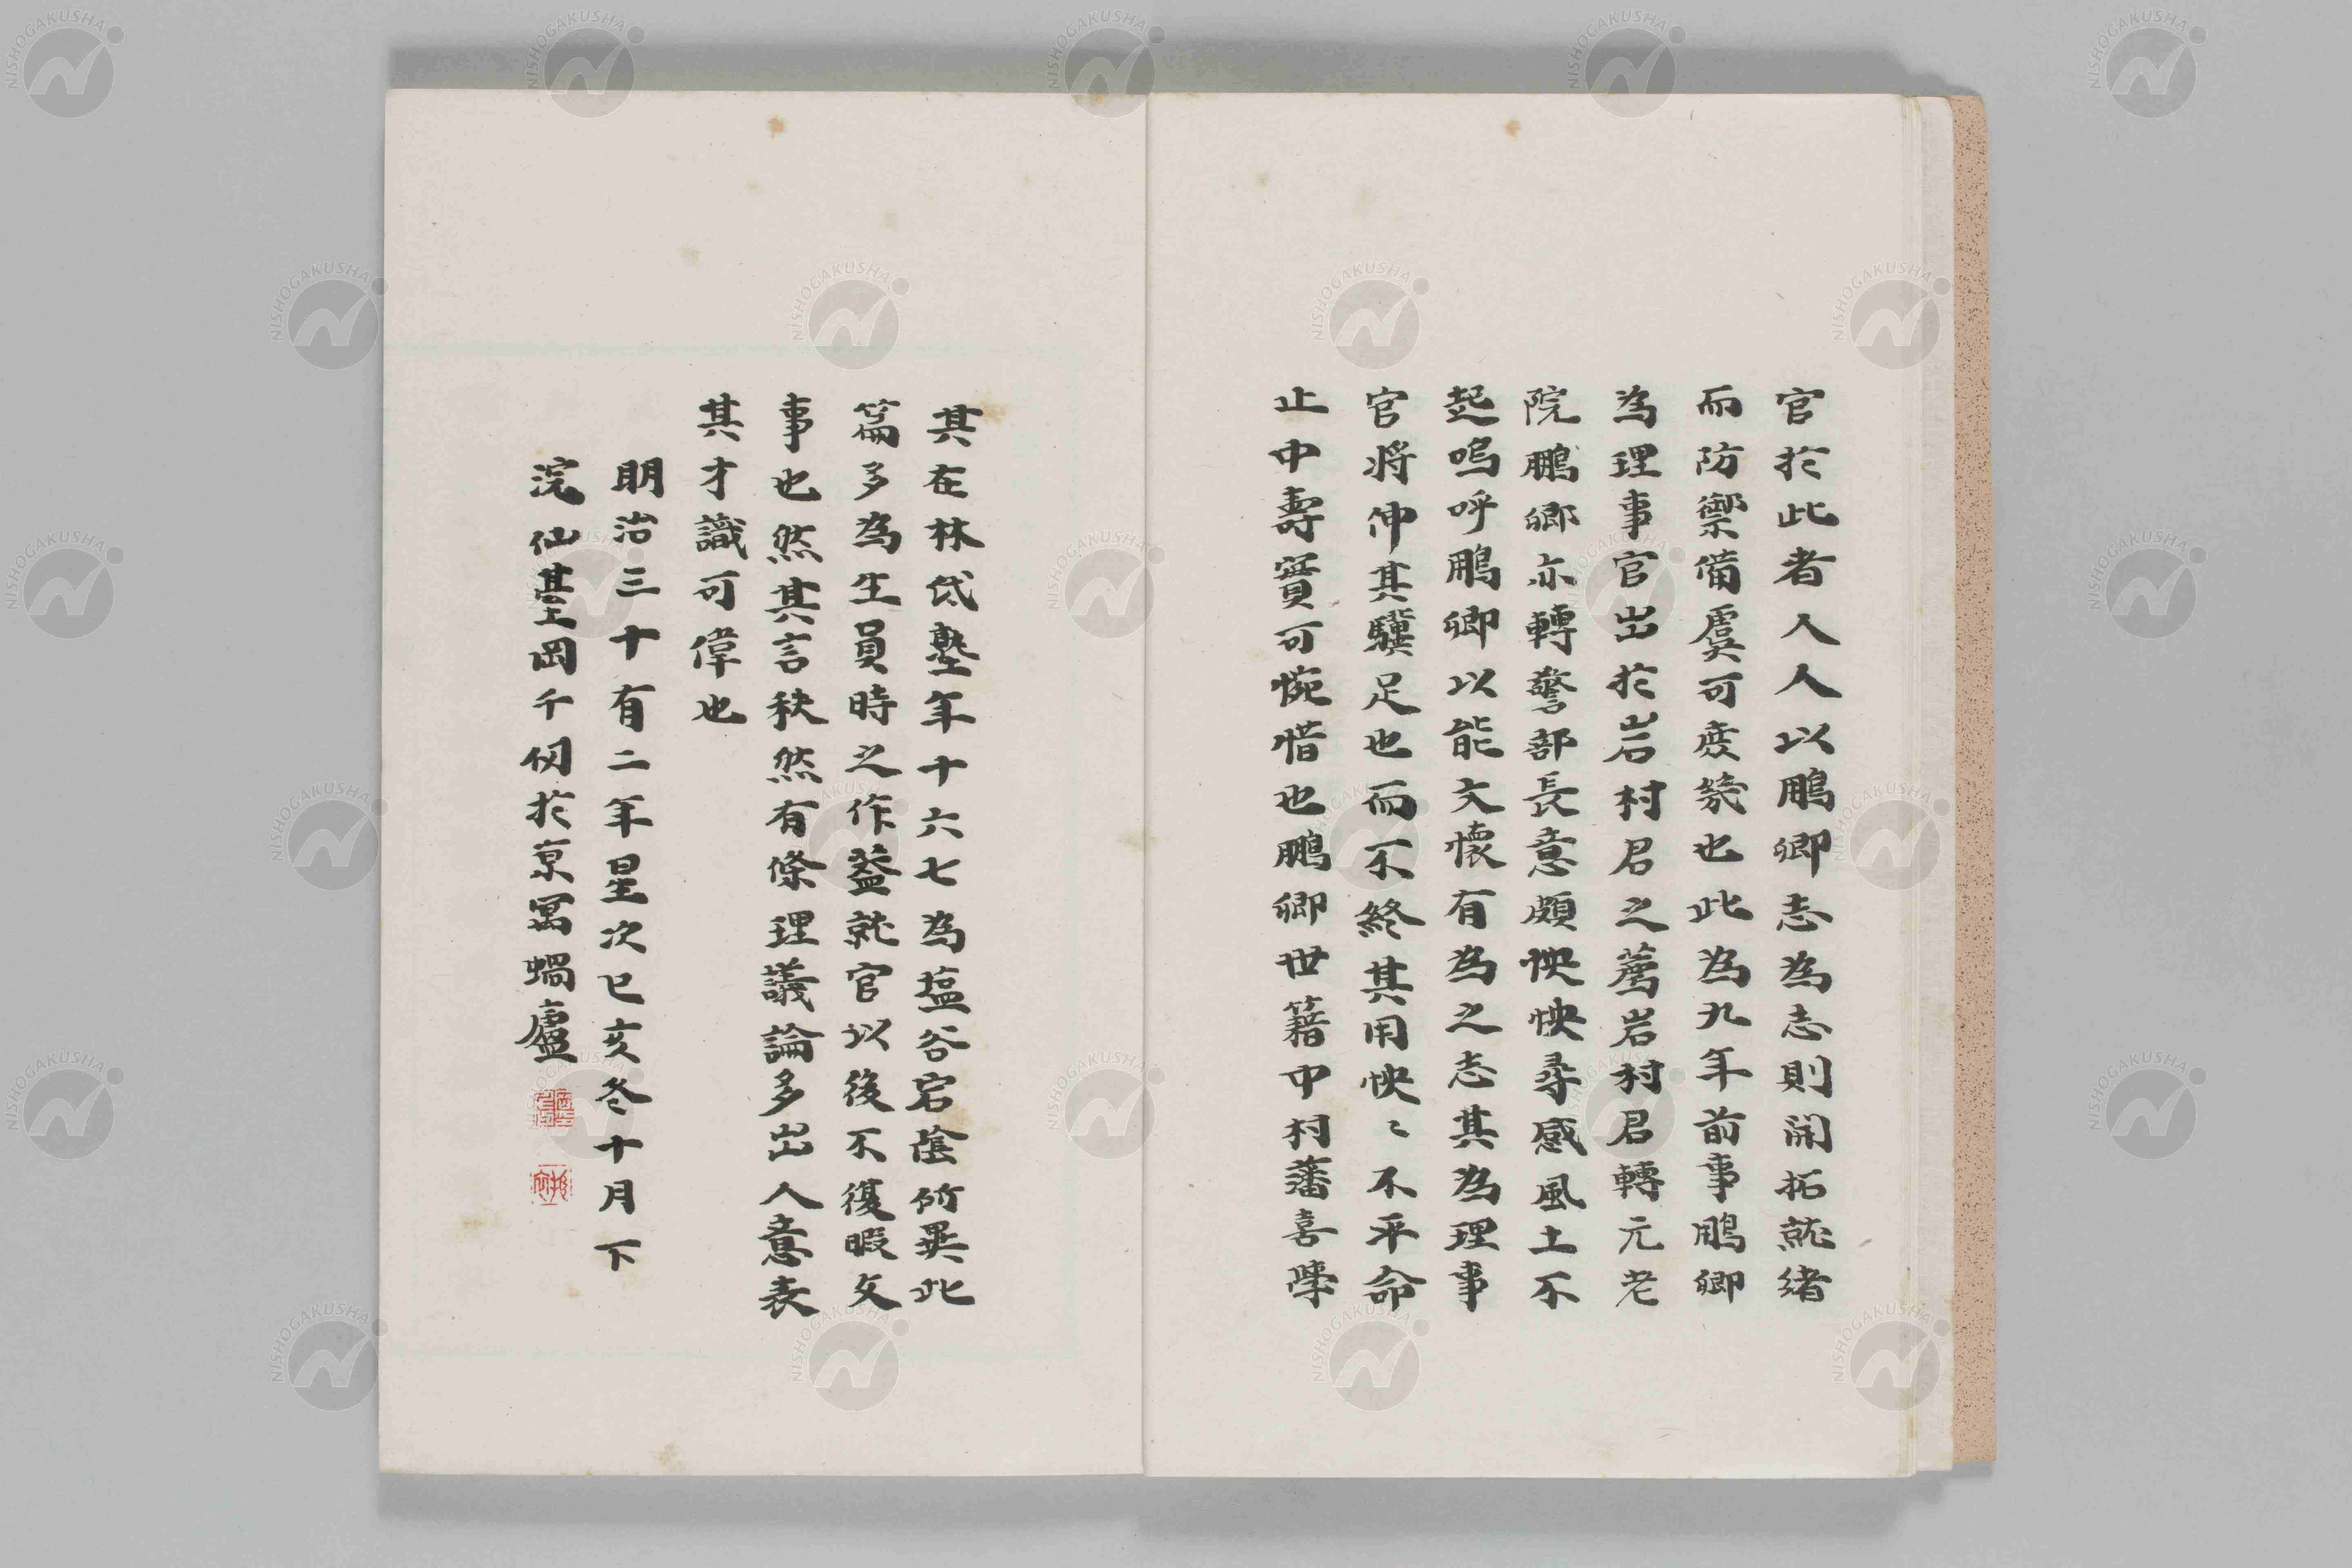 官於此者人人以鵬卿志為志則開拓就緒
而防禦備虞可庶幾也此為九年前事鵬卿
為理事官出於岩村君之薦岩村君轉元老
院鵬卿亦轉警部長意頗怏怏尋感風土不
起嗚呼鵬卿以能文懷有為之志其為理事
官將伸其驥足也而不終其用怏〻不平命
止中壽寶可惋惜也鵬卿世籍中村藩喜學
其在林氏塾年十六七為塩谷宕陰所異此
篇多為生員時之作益就官以後不復暇文
事也然其言秩然有條理議論多出人意表
其才識可偉也
明治三十有二年星次己亥冬十月下
浣仙臺岡千仞於京寓蝸廬
NISHOGAKUSHA